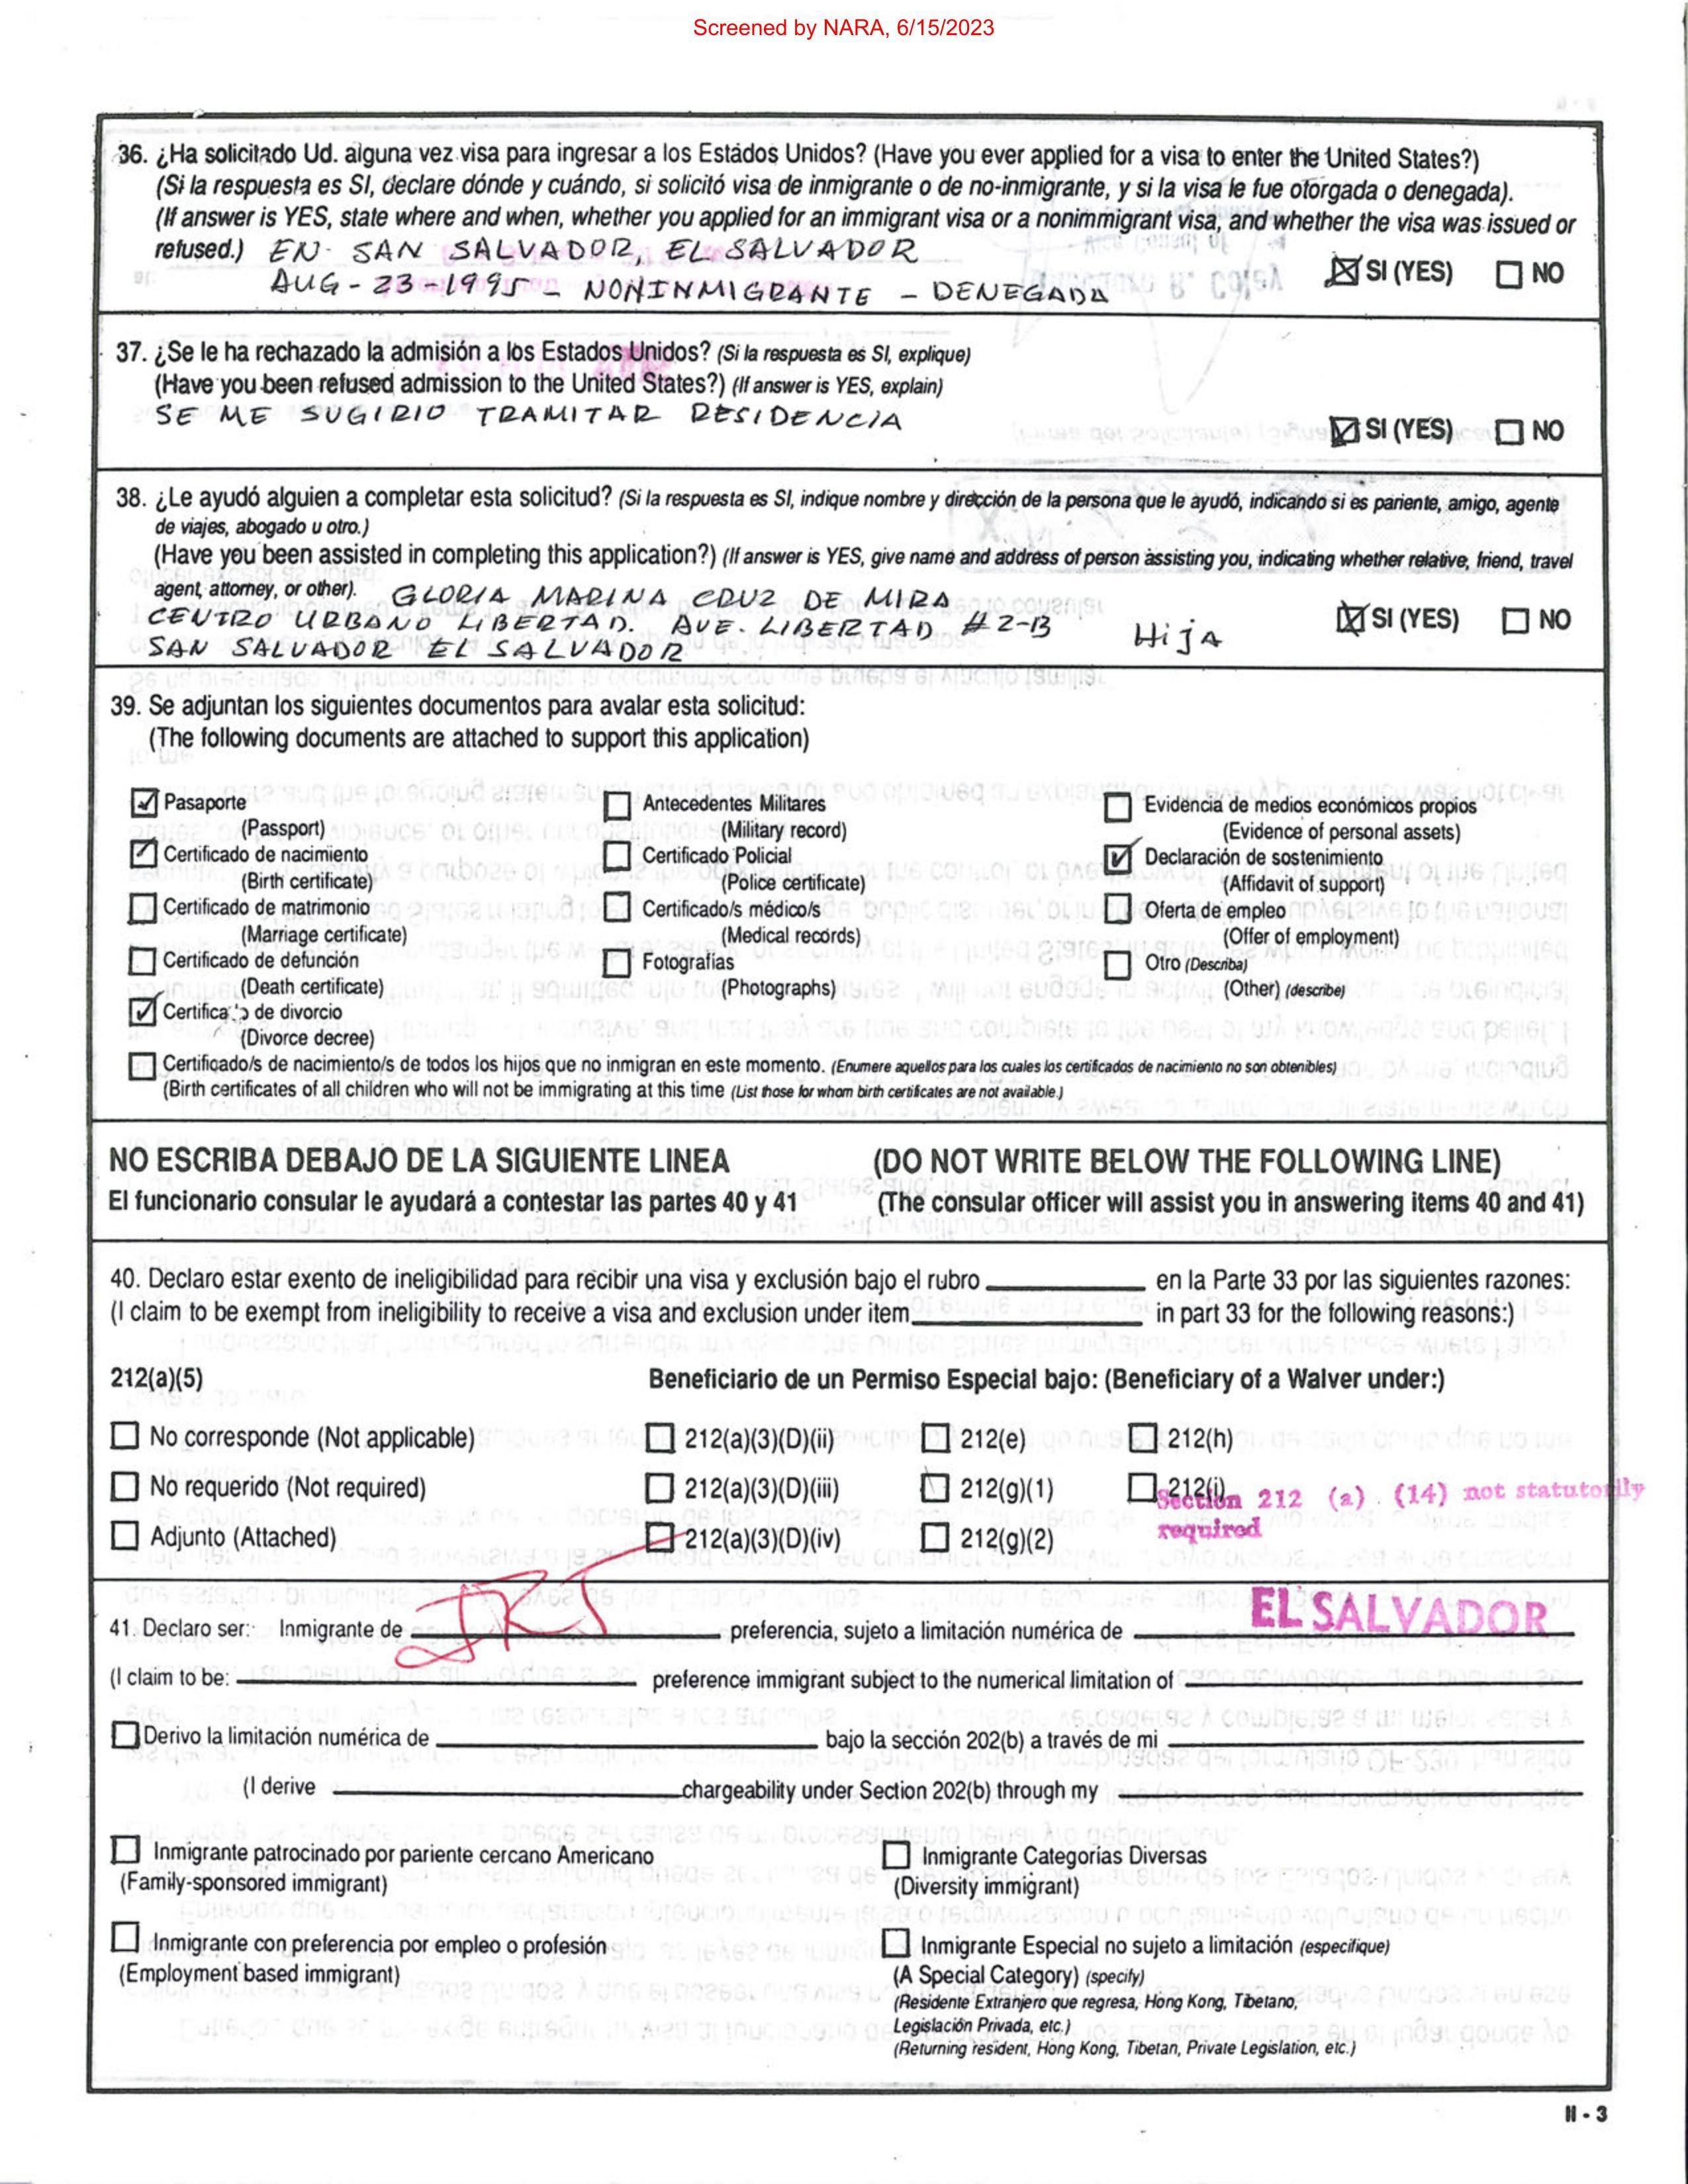 Screened by NARA, 6/15/2023
36. ¿Ha solicitado Ud. alguna vez visa para ingresar a los Estádos Unidos? (Have you ever applied for a visa to enter the United States?)
(Si la respuesta es SI, declare dónde y cuándo, si solicitó visa de inmigrante o de no-inmigrante, y si la visa le fue otorgada o denegada).
(If answer is YES, state where and when, whether you applied for an immigrant visa or a nonimmigrant visa, and whether the visa was issued or
refused.) EN SAN SALVADOR, EL SALVADOR
AUG-23-1995 - NONINMIGRANTE - DENEGADA
SI (YES) NO
37. ¿Se le ha rechazado la admisión a los Estados Unidos? (Si la respuesta es SI, explique)
(Have you been refused admission to the United States?) (If answer is YES, explain)
SE ME SUGIRIO TRAMITAR RESIDENCIA
SI (YES) NO
38. ¿Le ayudó alguien a completar esta solicitud? (Si la respuesta es SI, indique nombre y dirección de la persona que le ayudó, indicando si es pariente, amigo, agente
de viajes, abogado u otro.)
(Have you been assisted in completing this application?) (If answer is YES, give name and address of person assisting you, indicating whether relative, friend, travel
agent, attorney, or other). GLORIA MARINA CRUZ DE MIRA
CENTRO URBANO LIBERTAD. AVE. LIBERTAD #2-B
SAN SALVADOR EL SALVADOR Hija
SI (YES) NO
39. Se adjuntan los siguientes documentos para avalar esta solicitud:
(The following documents are attached to support this application)
Pasaporte Antecedentes Militares Evidencia de medios económicos propios
(Passport) (Military record) (Evidence of personal assets)
Certificado de nacimiento Certificado Policial Declaración de sostenimiento
(Birth certificate) (Police certificate) (Affidavit of support)
Certificado de matrimonio Certificado/s médico/s Oferta de empleo
(Marriage certificate) (Medical records) (Offer of employment)
Certificado de defunción Fotografías Otro (Describa)
(Death certificate) (Photographs) (Other) (describe)
Certificado de divorcio
(Divorce decree)
Certificado/s de nacimiento/s de todos los hijos que no inmigran en este momento. (Enumere aquellos para los cuales los certificados de nacimiento no son obtenibles)
(Birth certificates of all children who will not be immigrating at this time (List those for whom birth certificates are not available.)
NO ESCRIBA DEBAJO DE LA SIGUIENTE LINEA (DO NOT WRITE BELOW THE FOLLOWING LINE)
El funcionario consular le ayudará a contestar las partes 40 y 41 (The consular officer will assist you in answering items 40 and 41)
40. Declaro estar exento de ineligibilidad para recibir una visa y exclusión bajo el rubro en la Parte 33 por las siguientes razones:
(I claim to be exempt from ineligibility to receive a visa and exclusion under item in part 33 for the following reasons:)
212(a)(5) Beneficiario de un Permiso Especial bajo: (Beneficiary of a Walver under:)
No corresponde (Not applicable) 212(a)(3)(D)(ii) 212(e) 212(h)
No requerido (Not required) 212(a)(3)(D)(iii) 212(g)(1) 212(i)
Section 212 (a) (14) not statutorily
required
Adjunto (Attached) 212(a)(3)(D)(iv) 212(g)(2)
41. Declaro ser: Inmigrante de preferencia, sujeto a limitación numérica de EL SALVADOR
(I claim to be: preference immigrant subject to the numerical limitation of
Derivo la limitación numérica de bajo la sección 202(b) a través de mi
(I derive chargeability under Section 202(b) through my
Inmigrante patrocinado por pariente cercano Americano Inmigrante Categorias Diversas
(Family-sponsored immigrant) (Diversity immigrant)
Inmigrante con preferencia por empleo o profesión Inmigrante Especial no sujeto a limitación (especifique)
(Employment based immigrant) (A Special Category) (specify)
(Residente Extranjero que regresa, Hong Kong, Tibetano,
Legislación Privada, etc.)
(Returning resident, Hong Kong, Tibetan, Private Legislation, etc.)
II - 3